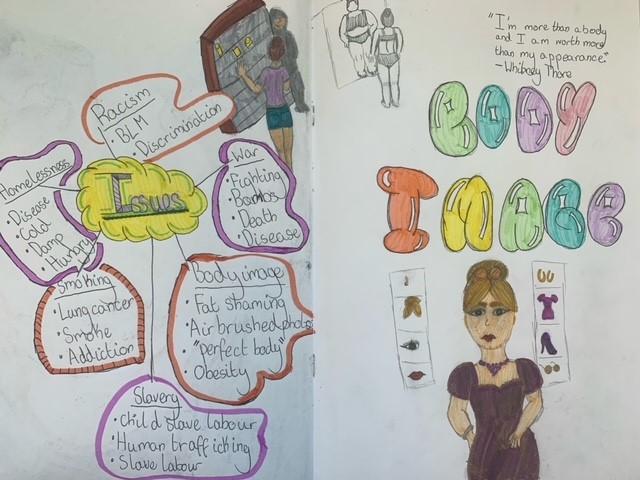 Racism
• BLM
• Discrimination
Homelessness
• Disease
• Cold
• Damp
• Hungry
Issues
War
• Fighting
• Bombs
• Death
• Disease
Smoking
• Lung cancer
• Smoke
• Addiction
Body image
• Fat shaming
• Airbrushed photos
• "perfect body"
• Obesity
Slavery
• Child slave labour
• Human trafficking
• Slave labour
"I'm more than a body
and I am worth more
than my appearance."
- Whitney Thore
BODY
IMAGE